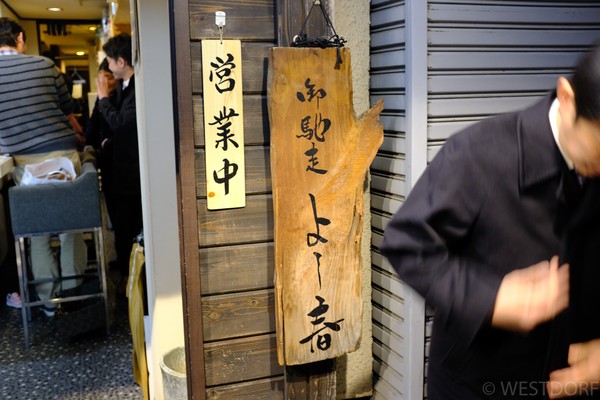 営業中
御馳走
よし春
© WESTDORF